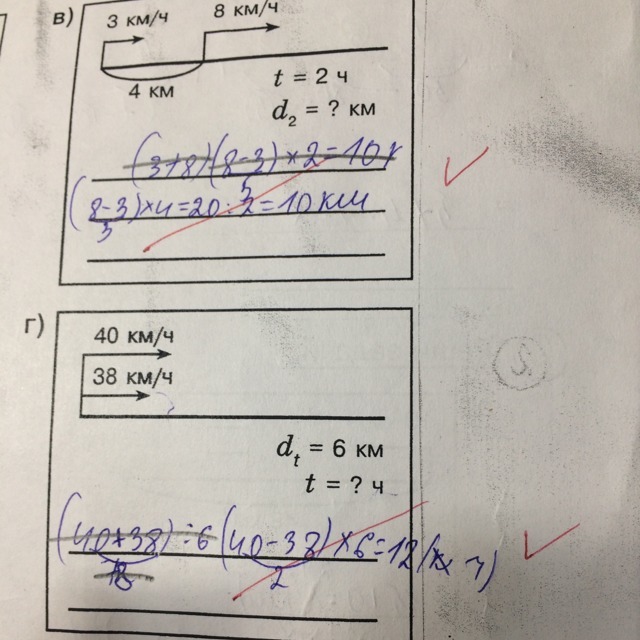 в)
3 км/ч 8 км/ч
4 км
t = 2 ч
d₂ = ? км
(3+8)(8-3)×2=10
(8-3)×4=20:2=10 км
5
г)
40 км/ч
38 км/ч
dₜ = 6 км
t = ? ч
(40+38):6 (40-38)×6=12 (ч)
2
S.